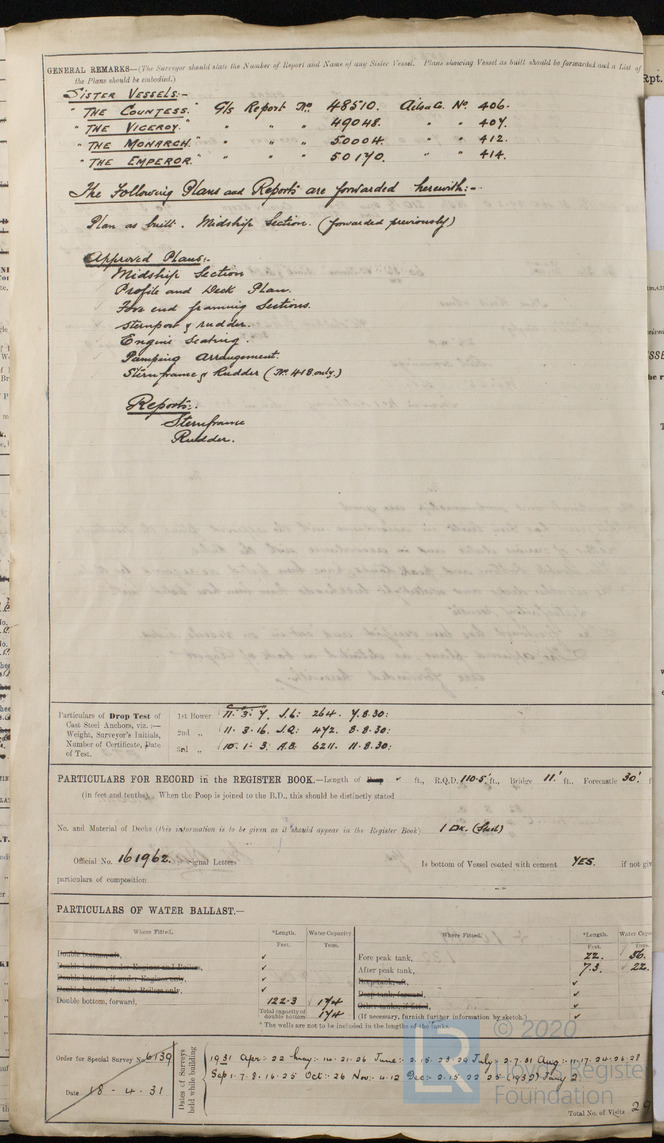 GENERAL REMARKS—(The Surveyor should state the Number of Report and Name of any Sister Vessel. Plans shewing Vessel as built should be forwarded and a List of
the Plans should be embodied.)
SISTER VESSELS:-
"THE COUNTESS." G/s Report No. 48510. Ailsa G. No. 406.
"THE VICEROY." " " " 49048. " " 407.
"THE MONARCH." " " " 50004. " " 412.
"THE EMPEROR." " " " 50170. " " 414.
The Following Plans and Reports are forwarded herewith:-
Plan as built. Midship Section. (forwarded previously)
Approved Plans:-
Midship Section
Profile and Deck Plan.
Fore end framing Sections.
Sternpost & rudder.
Engine Seating.
Pumping Arrangement.
Sternframe & Rudder (No. 418 only.)
Reports:-
Sternframe
Rudder.
Particulars of Drop Test of
Cast Steel Anchors, viz.:—
Weight, Surveyor's Initials,
Number of Certificate, Date
of Test.
1st Bower 11. 3. 7. J.L: 264. 7.8.30:
2nd " 11. 3. 16. J.A: 472. 8.8.30:
3rd " 10. 1. 3. A.B. 6211. 11.8.30:
PARTICULARS FOR RECORD in the REGISTER BOOK.—Length of Poop ✓ ft., R.Q.D. 110.5' ft., Bridge 11.' ft., Forecastle 30.' f
(in feet and tenths). When the Poop is joined to the B.D., this should be distinctly stated
No. and Material of Decks (this information is to be given as it should appear in the Register Book) 1 Dk. (Steel)
Official No. 161962. Signal Letters Is bottom of Vessel coated with cement YES. if not giv
particulars of composition
PARTICULARS OF WATER BALLAST.—
Where Fitted. *Length. Water Capacity. Where Fitted. *Length. Water Capac
Feet. Tons. Feet. Tons.
Double bottom, aft, ✓ Fore peak tank, 22. 56.
Double bottom, under Engines and Boilers, ✓ After peak tank, 7.3. 22.
Double bottom, if under Engines only, ✓ Deep tank, aft, ✓
Double bottom, if under Boilers only, ✓ Deep tank, forward, ✓
Double bottom, forward, 122.3 174 Other tanks, if fitted, ✓
Total capacity of double bottom 174 (If necessary, furnish further information by sketch.) ✓
* The wells are not to be included in the lengths of the tanks.
© 2020
Lloyd's Register
Foundation
Order for Special Survey No. 6139
Date 18-4-31
Dates of Surveys
held while building
1931 Apr:- 22 May:- 14.21.26 June:- 2.15.23.29 July:- 2.7.31 Aug:- 11.17.24.26.28
Sep:- 1.7.8.16.25 Oct:- 26 Nov:- 4.12 Dec:- 2.15.22.25 (1932) Jany 2
Total No. of Visits 29
Rpt.